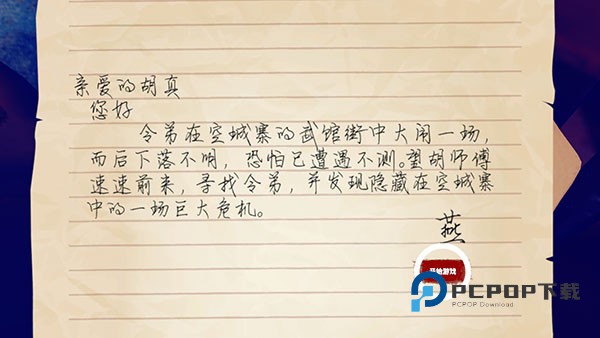 亲爱的胡真
您好
令弟在空城寨的武馆街中大闹一场，
而后下落不明，恐怕已遭遇不测。望胡师傅
速速前来，寻找令弟，并发现隐藏在空城寨
中的一场巨大危机。
燕
开始游戏
PCPOP下载
PCPOP Download